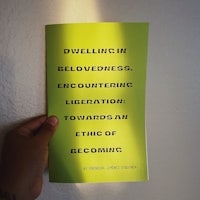 DWELLING IN
BELOVEDNESS,
ENCOUNTERING
LIBERATION:
TOWARDS AN
ETHIC OF
BECOMING
BY